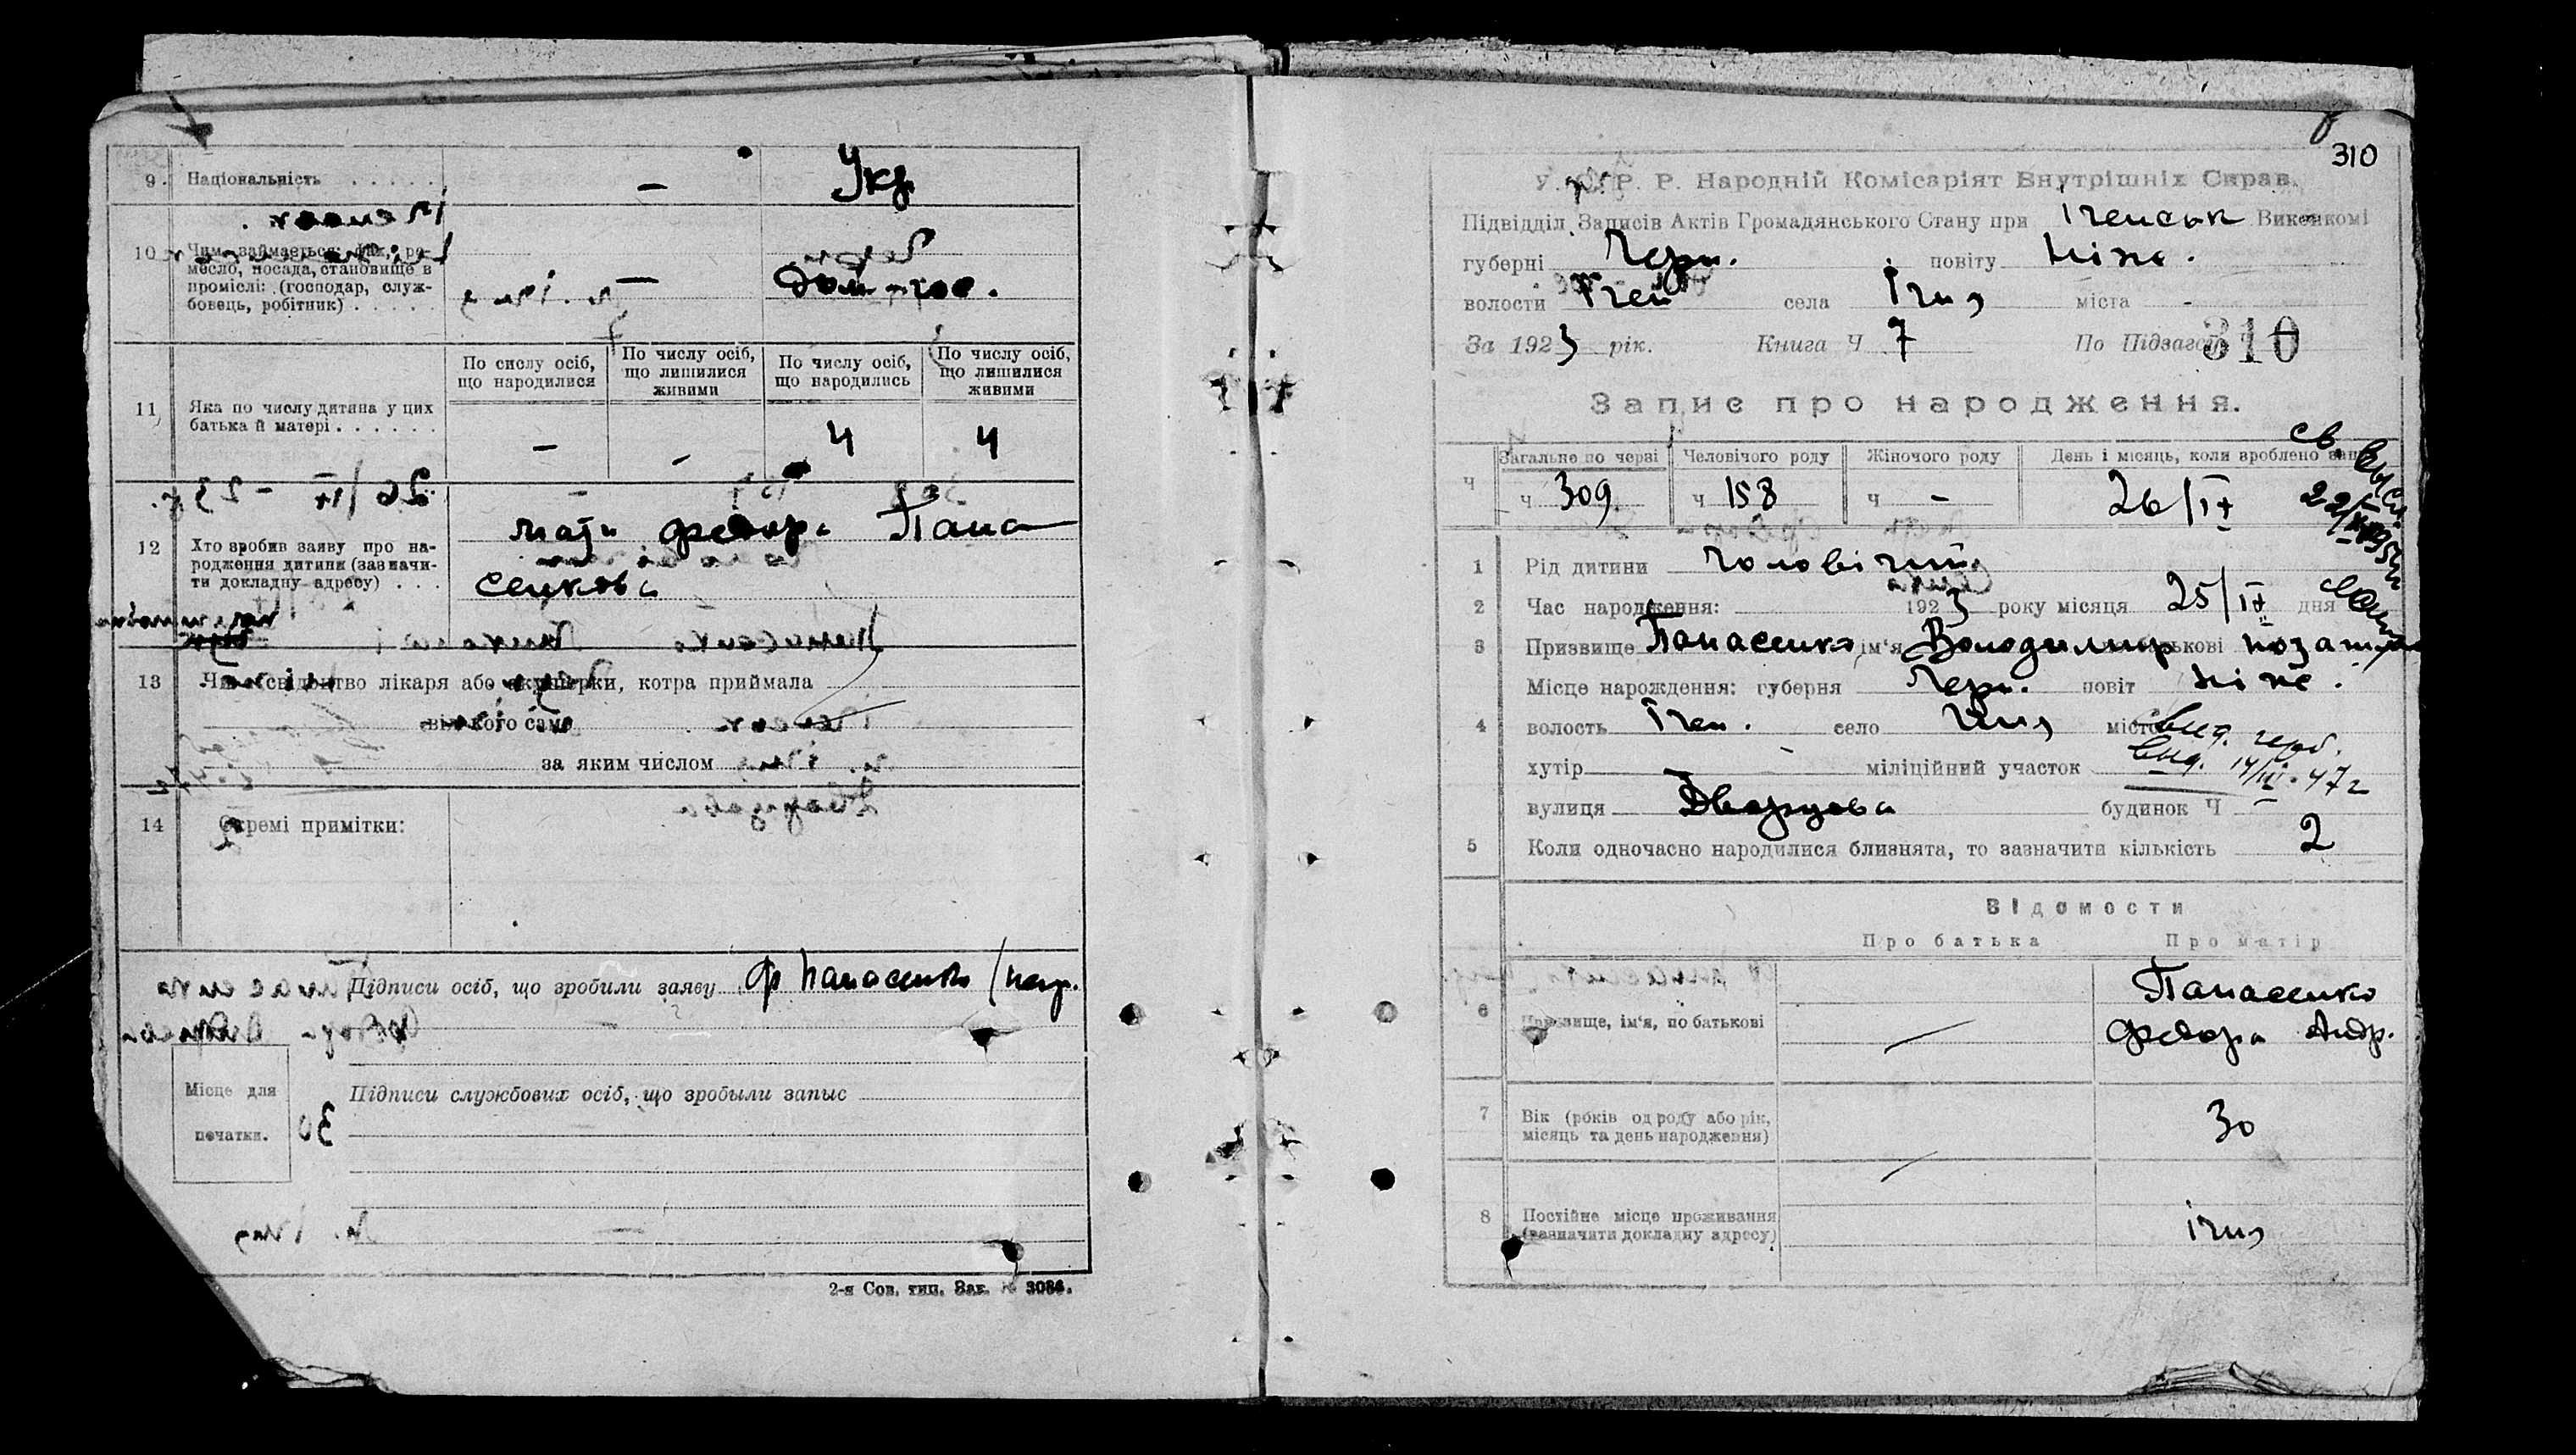 9. Національність . . . . . — Укр.
10 Чим займається: фах, ре-
месло, посада, становище в
проміслі: (господар, служ-
бовець, робітник) . . . . . — дом-гос.
По сислу осіб, що народилися
По числу осіб, що лишилися живими
По числу осіб, що народились
По числу осіб, що лишилися живими
11 Яка по числу дитина у цих
батька й матері . . . . . . — - 4 4
12 Хто зробив заяву про на-
родження дитини (зазначи-
ти докладну адресу) . . .
мати Федора Пана
сенкова
13 Чи є свідоцтво лікаря або акушерки, котра приймала
від кого саме
за яким числом
14 Окремі примітки:
Підписи осіб, що зробили заяву Ф Панасенко
Місце для
печатки.
Підписи службових осіб, що зробыли запыс
2-я Сов. тип. Зак. № 3086.
310
У. С. Р. Р. Народній Комісаріят Внутрішніх Справ.
Підвідділ Записів Актів Громадянського Стану при Іченськ Виконкомі
губерні Черн. повіту Ніже.
волости Ічен села Ічня міста -
За 1923 рік. Книга Ч 7 По Підзаг
310
Запис про народження.
Загальне по черзі Человічого роду Жіночого роду День і місяць, коли зроблено запис
Ч ч 309. ч 158 ч - 26/IX
1 Рід дитини чоловічий
2 Час народження: 1923 року місяця 25/IX дня
3 Призвище Панасенко ім'я Володимир по батькові позашл
Місце нарождення: губерня Черн. повіт Ніже.
4 волость Ічен. село Ічня місто
хутір - міліційний участок
Вид. 14/III-47г
вулиця Дворцова будинок Ч -
5 Коли одночасно народилися близнята, то зазначити кількість 2
Відомости
Про батька Про матір
6 Призвище, ім'я, по батькові Панасенко
Федора Андр.
7 Вік (років од роду або рік,
місяць та день народження) 30
8 Постійне місце проживання
(зазначити докладну адресу) Ічня